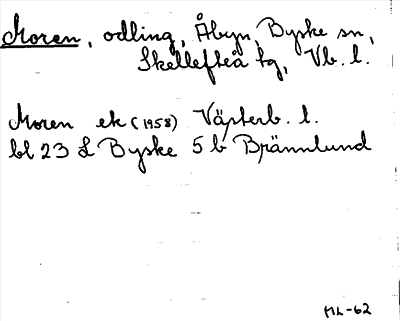 Moren, odling, Åbyn, Byske sn,
Skellefteå tg, Vb. l.
Moren ek (1958) Västerb. l.
bl 23 L Byske 5 b Brännlund
ML-62